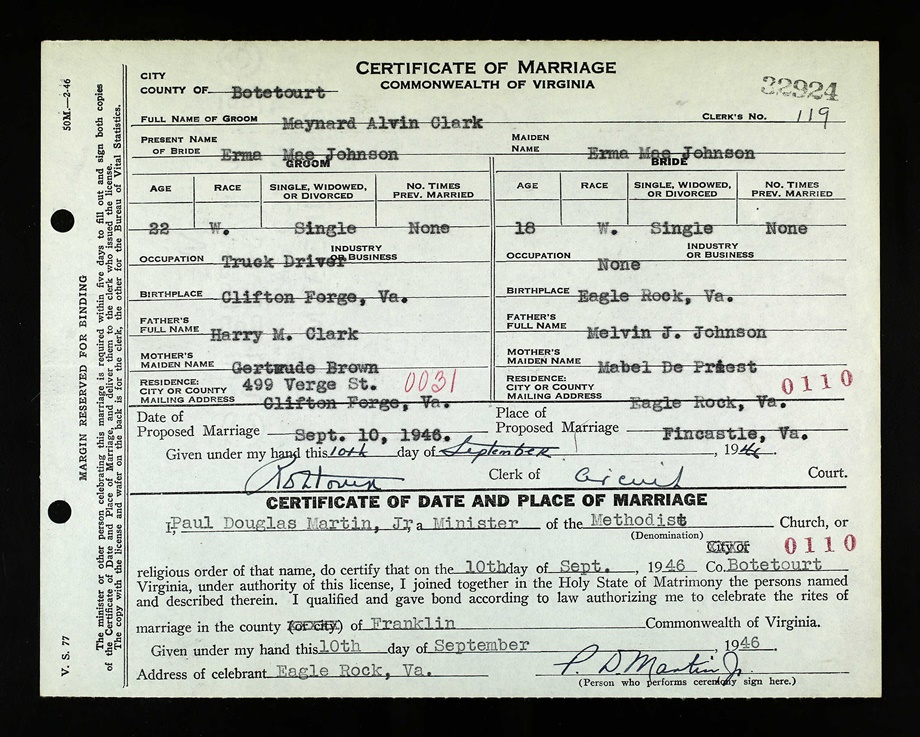 CERTIFICATE OF MARRIAGE
COMMONWEALTH OF VIRGINIA
32924
CITY
COUNTY OF Botetourt
FULL NAME OF GROOM Maynard Alvin Clark CLERK'S NO. 119
PRESENT NAME OF BRIDE Erma Mae Johnson MAIDEN NAME Erma Mae Johnson
GROOM BRIDE
AGE RACE SINGLE, WIDOWED, OR DIVORCED NO. TIMES PREV. MARRIED AGE RACE SINGLE, WIDOWED, OR DIVORCED NO. TIMES PREV. MARRIED
22 W. Single None 18 W. Single None
OCCUPATION Truck Driver INDUSTRY OR BUSINESS OCCUPATION None INDUSTRY OR BUSINESS
BIRTHPLACE Clifton Forge, Va. BIRTHPLACE Eagle Rock, Va.
FATHER'S FULL NAME Harry M. Clark FATHER'S FULL NAME Melvin J. Johnson
MOTHER'S MAIDEN NAME Gertrude Brown MOTHER'S MAIDEN NAME Mabel De Priest
RESIDENCE: CITY OR COUNTY MAILING ADDRESS 499 Verge St. 0031 Clifton Forge, Va. RESIDENCE: CITY OR COUNTY MAILING ADDRESS 0110 Eagle Rock, Va.
Date of Proposed Marriage Sept. 10, 1946. Place of Proposed Marriage Fincastle, Va.
Given under my hand this 10th day of September, 1946
Clerk of Circuit Court.
CERTIFICATE OF DATE AND PLACE OF MARRIAGE
I, Paul Douglas Martin, Jr, a Minister of the Methodist Church, or
(Denomination)
City or 0110
religious order of that name, do certify that on the 10th day of Sept., 1946 Co. Botetourt
Virginia, under authority of this license, I joined together in the Holy State of Matrimony the persons named
and described therein. I qualified and gave bond according to law authorizing me to celebrate the rites of
marriage in the county (or city) of Franklin Commonwealth of Virginia.
Given under my hand this 10th day of September, 1946
Address of celebrant Eagle Rock, Va. P. D. Martin Jr.
(Person who performs ceremony sign here.)
50M.—2-46
MARGIN RESERVED FOR BINDING
V. S. 77
The minister or other person celebrating this marriage is required within five days to fill out and sign both copies
of the Certificate of Date and Place of Marriage, and deliver them to the clerk who issued the license.
The copy with the license and wafer on the back is for the clerk, the other for the Bureau of Vital Statistics.